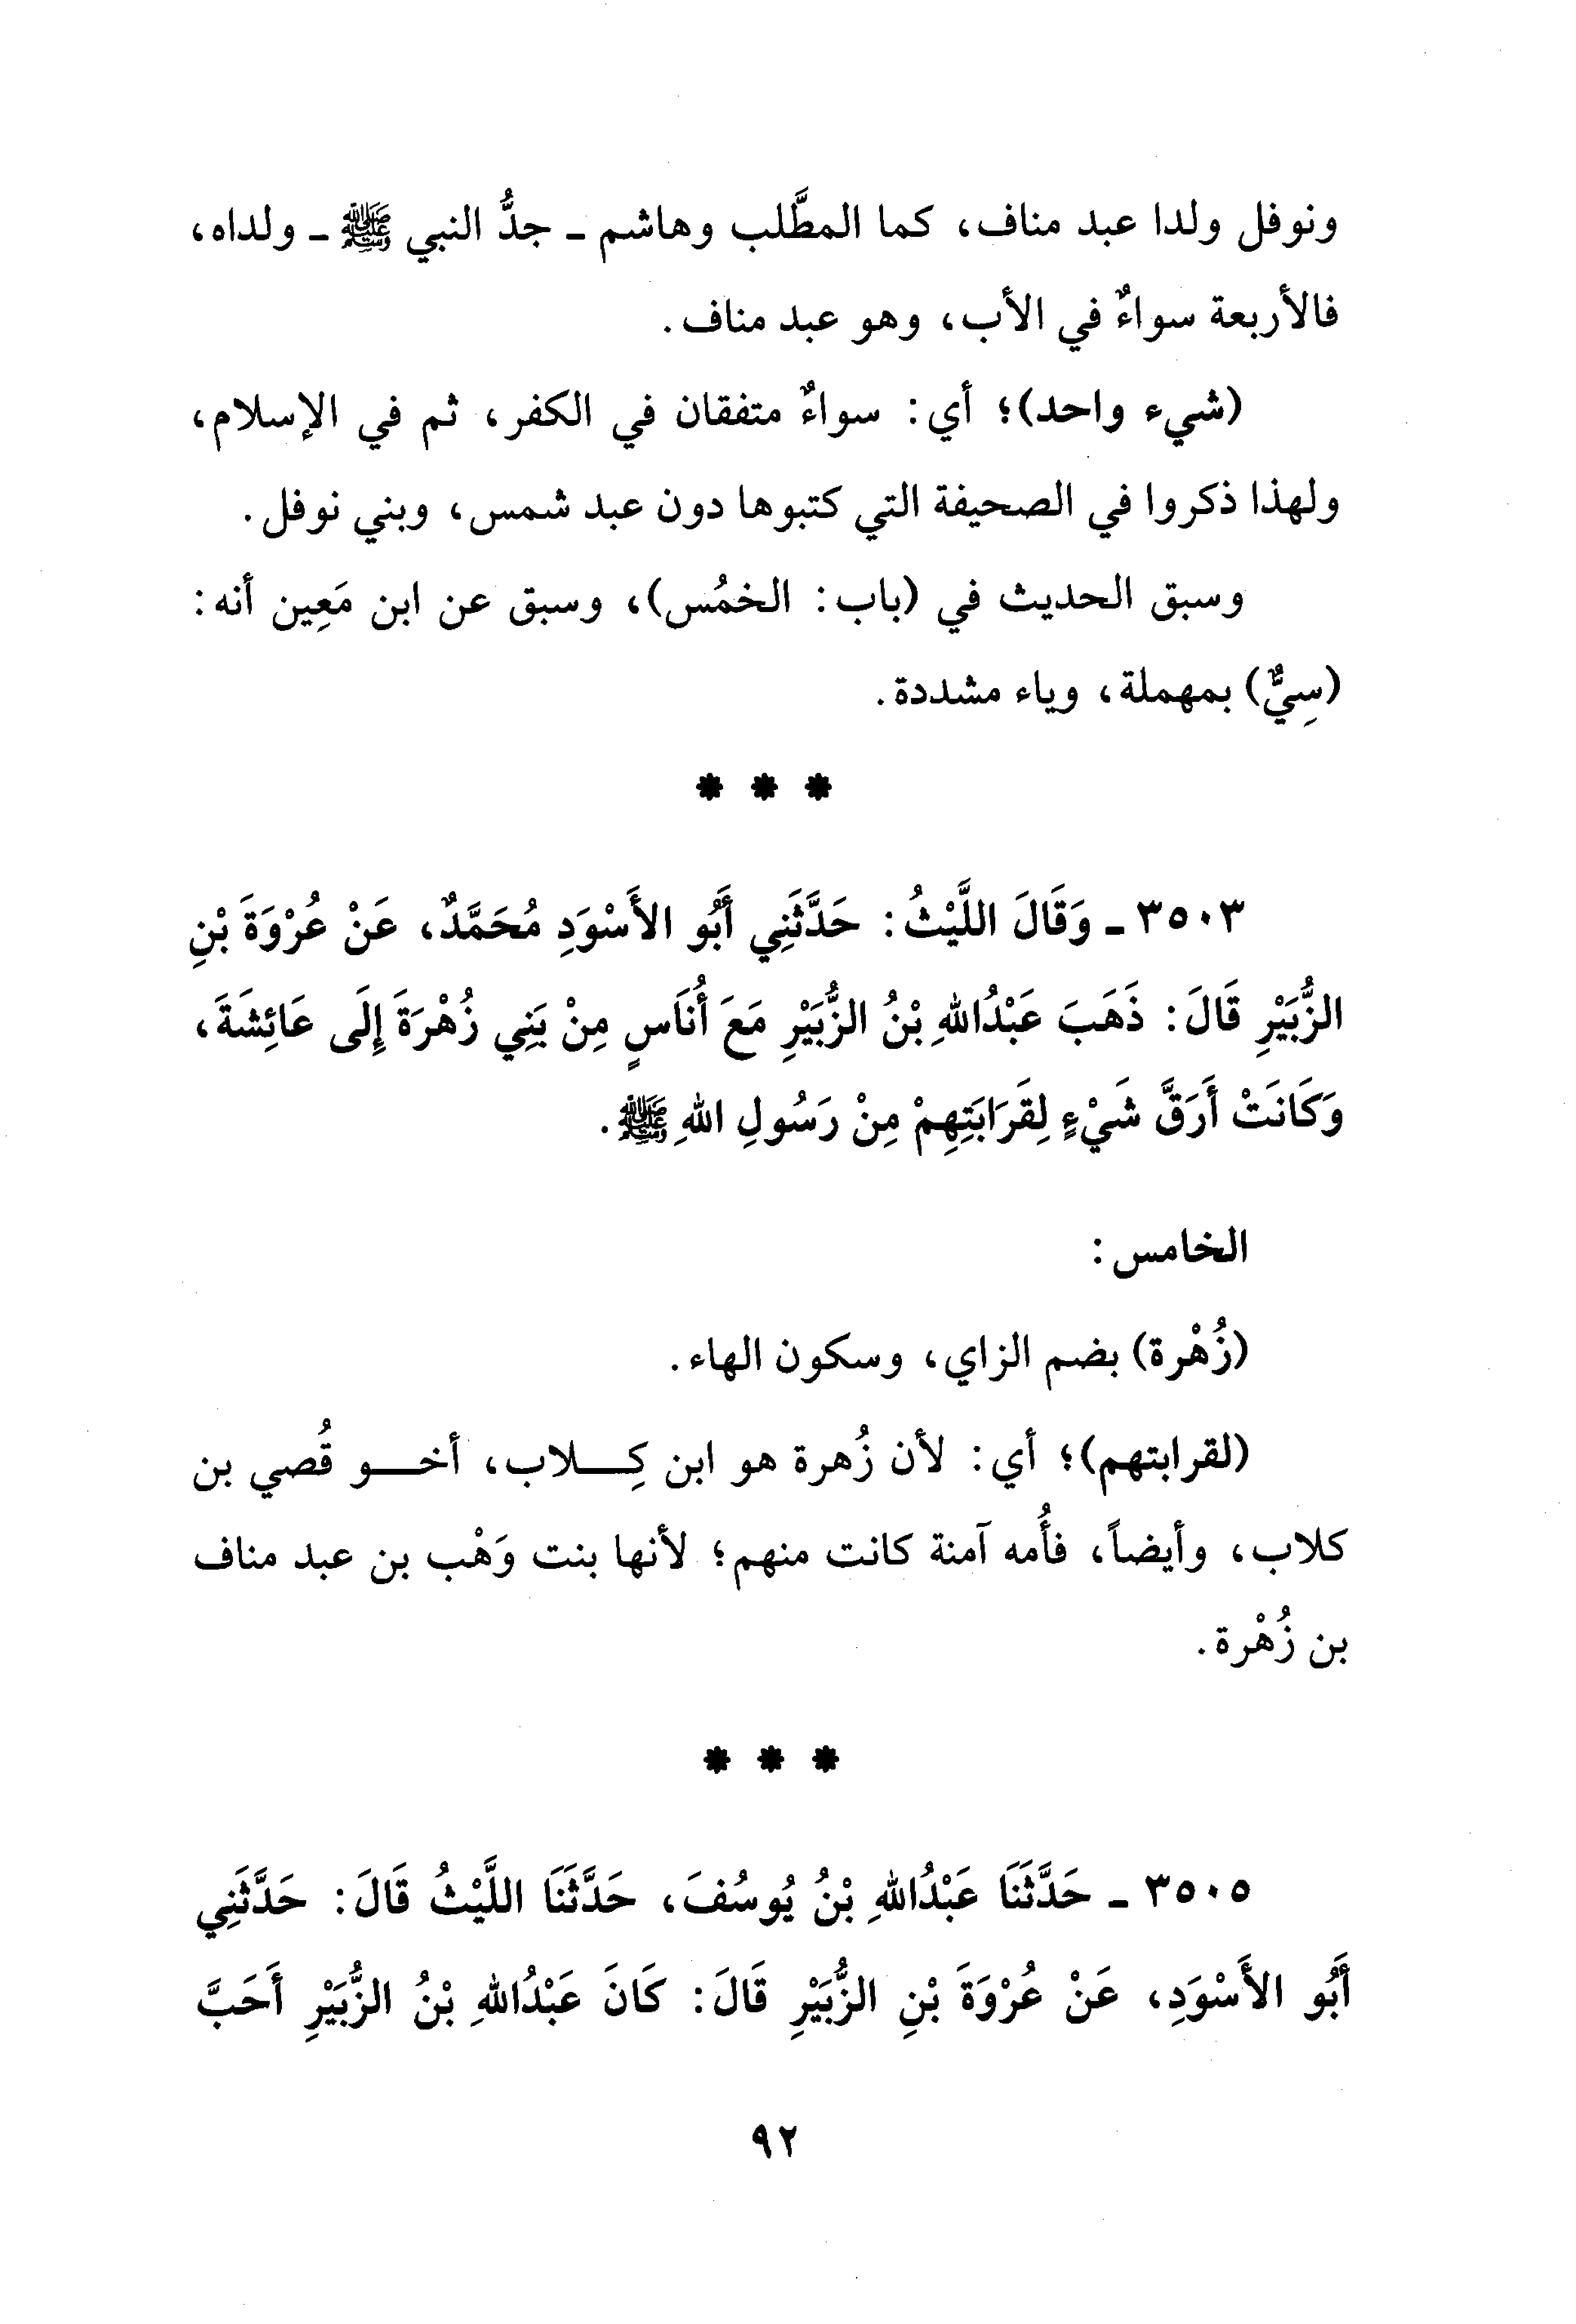 ونوفل ولدا عبد مناف، كما المطَّلب وهاشم - جدُّ النبي ﷺ - ولداه،
فالأربعة سواءٌ في الأب، وهو عبد مناف.
(شيء واحد)؛ أي: سواءٌ متفقان في الكفر، ثم في الإسلام،
ولهذا ذكروا في الصحيفة التي كتبوها دون عبد شمس، وبني نوفل.
وسبق الحديث في (باب: الخمُس)، وسبق عن ابن مَعِين أنه:
(سِيٌّ) بمهملة، وياء مشددة.
* * *
٣٥٠٣ - وَقَالَ اللَّيْثُ: حَدَّثَنِي أَبُو الأَسْوَدِ مُحَمَّدٌ، عَنْ عُرْوَةَ بْنِ
الزُّبَيْرِ قَالَ: ذَهَبَ عَبْدُاللهِ بْنُ الزُّبَيْرِ مَعَ أُنَاسٍ مِنْ بَنِي زُهْرَةَ إِلَى عَائِشَةَ،
وَكَانَتْ أَرَقَّ شَيْءٍ لِقَرَابَتِهِمْ مِنْ رَسُولِ اللهِ ﷺ.
الخامس:
(زُهْرة) بضم الزاي، وسكون الهاء.
(لقرابتهم)؛ أي: لأن زُهرة هو ابن كِـــلاب، أخـــو قُصي بن
كلاب، وأيضاً، فأُمه آمنة كانت منهم؛ لأنها بنت وَهْب بن عبد مناف
بن زُهْرة.
* * *
٣٥٠٥ - حَدَّثَنَا عَبْدُاللهِ بْنُ يُوسُفَ، حَدَّثَنَا اللَّيْثُ قَالَ: حَدَّثَنِي
أَبُو الأَسْوَدِ، عَنْ عُرْوَةَ بْنِ الزُّبَيْرِ قَالَ: كَانَ عَبْدُاللهِ بْنُ الزُّبَيْرِ أَحَبَّ
٩٢